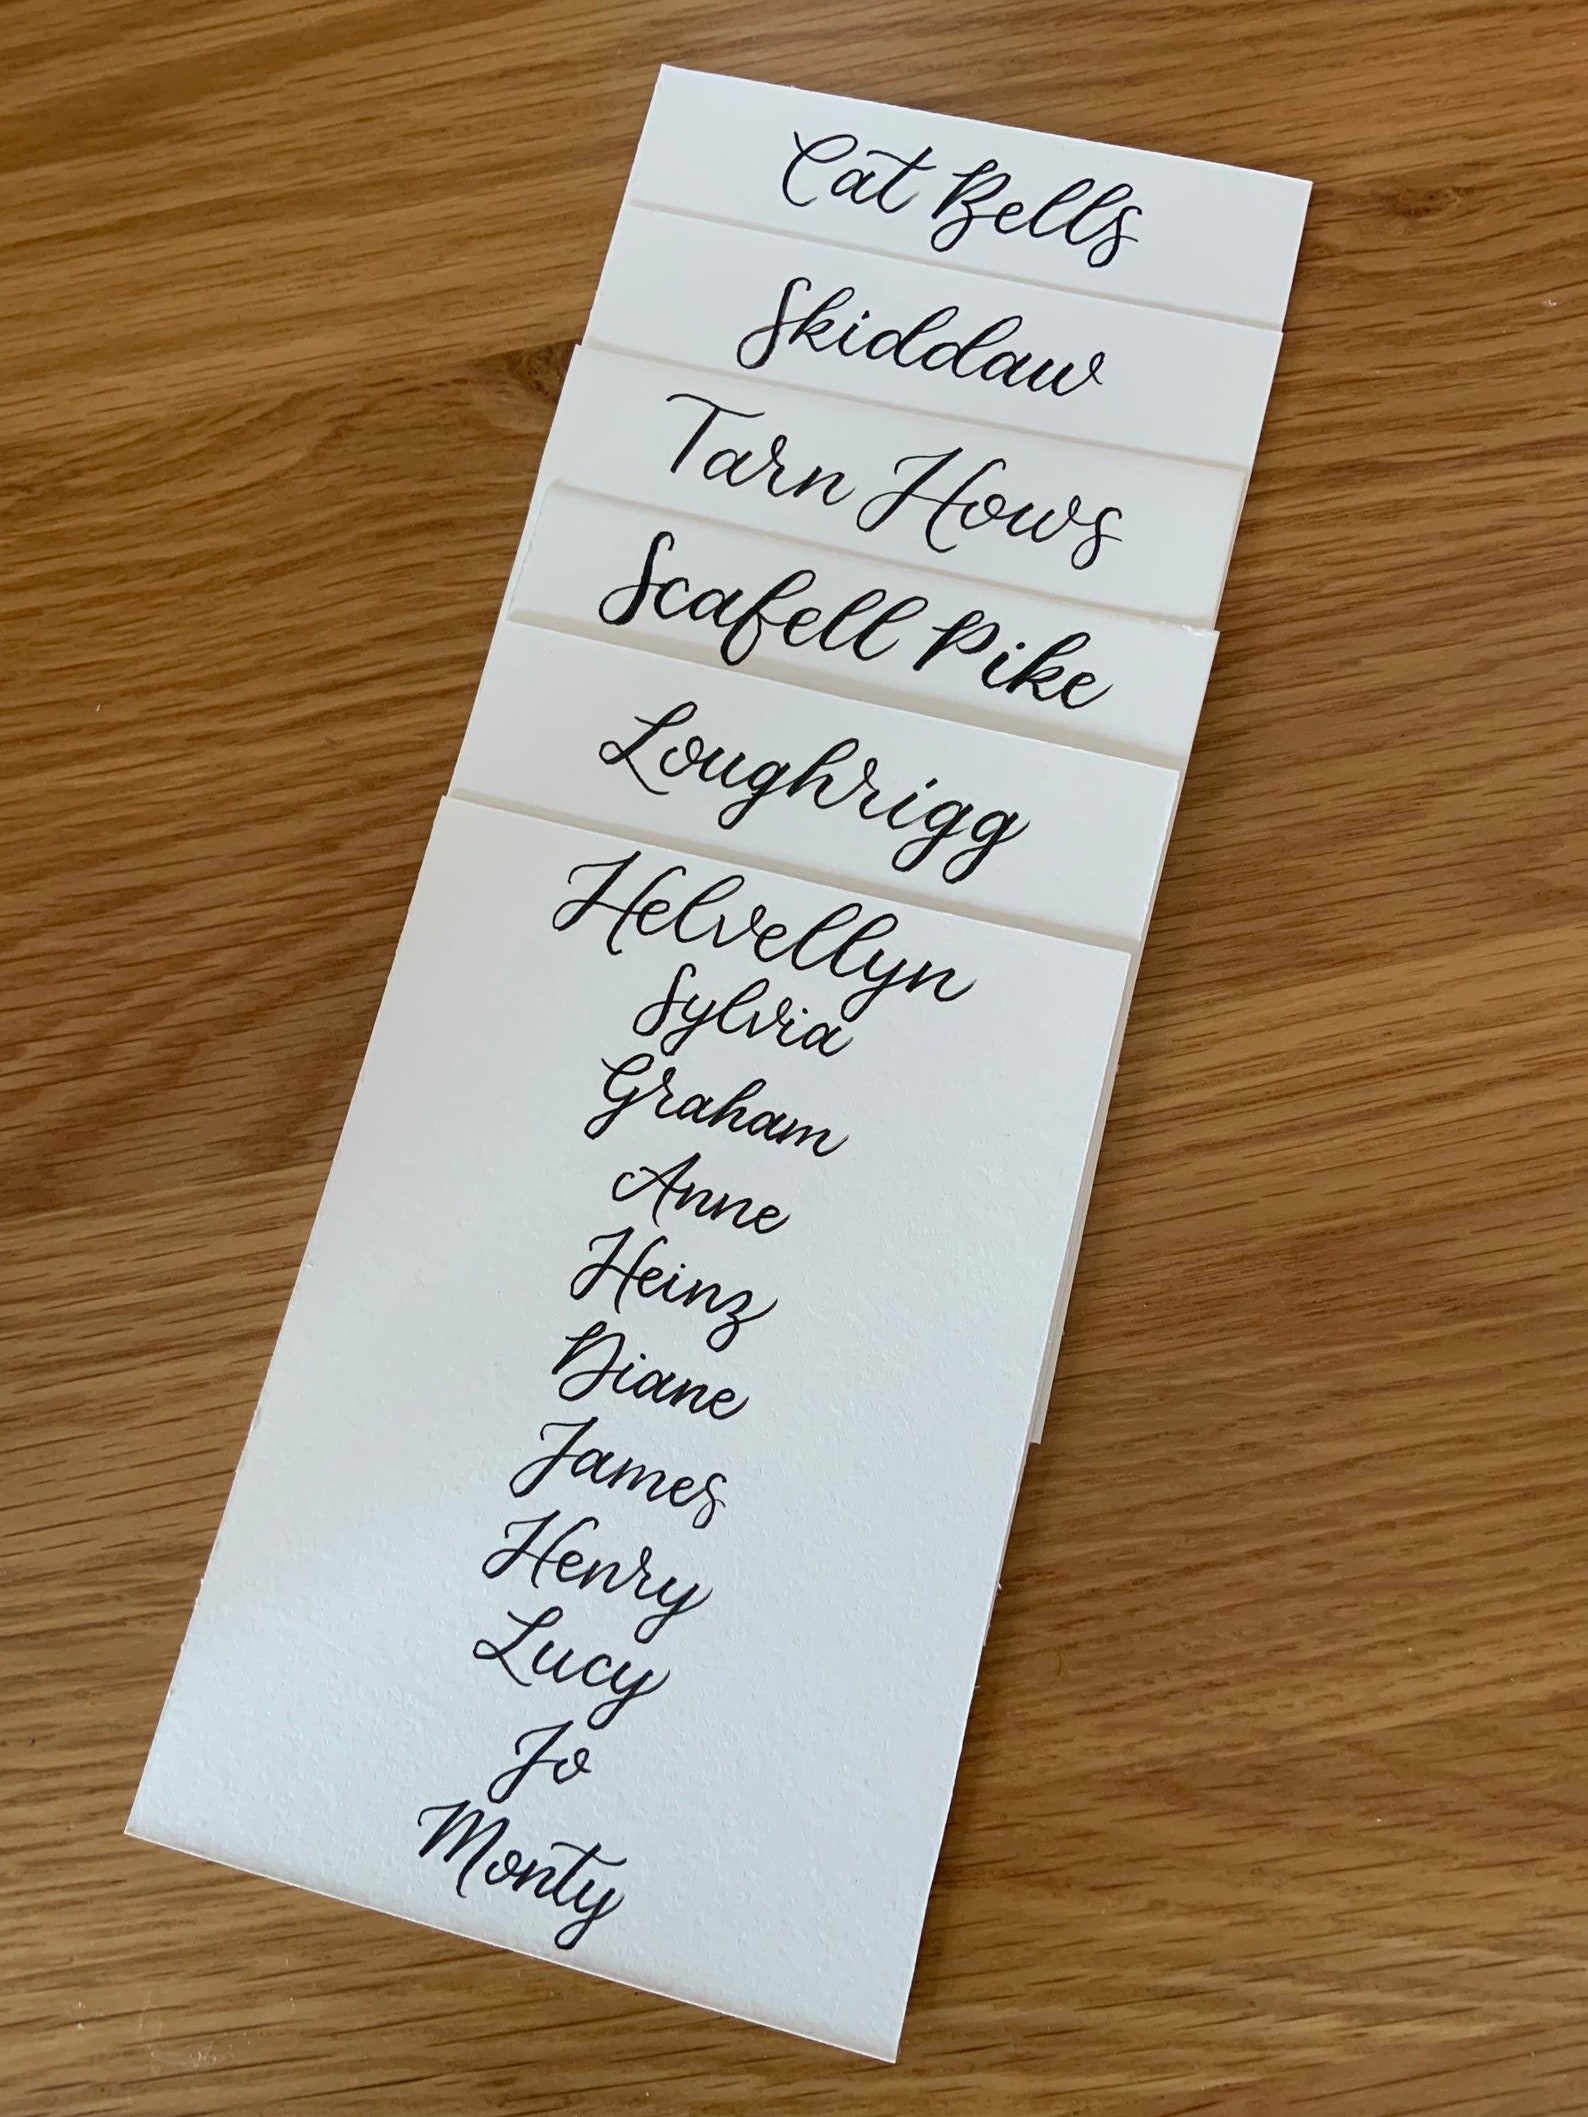 Cat Bells
Skiddaw
Tarn Hows
Scafell Pike
Loughrigg
Helvellyn
Sylvia
Graham
Anne
Heinz
Diane
James
Henry
Lucy
Jo
Monty